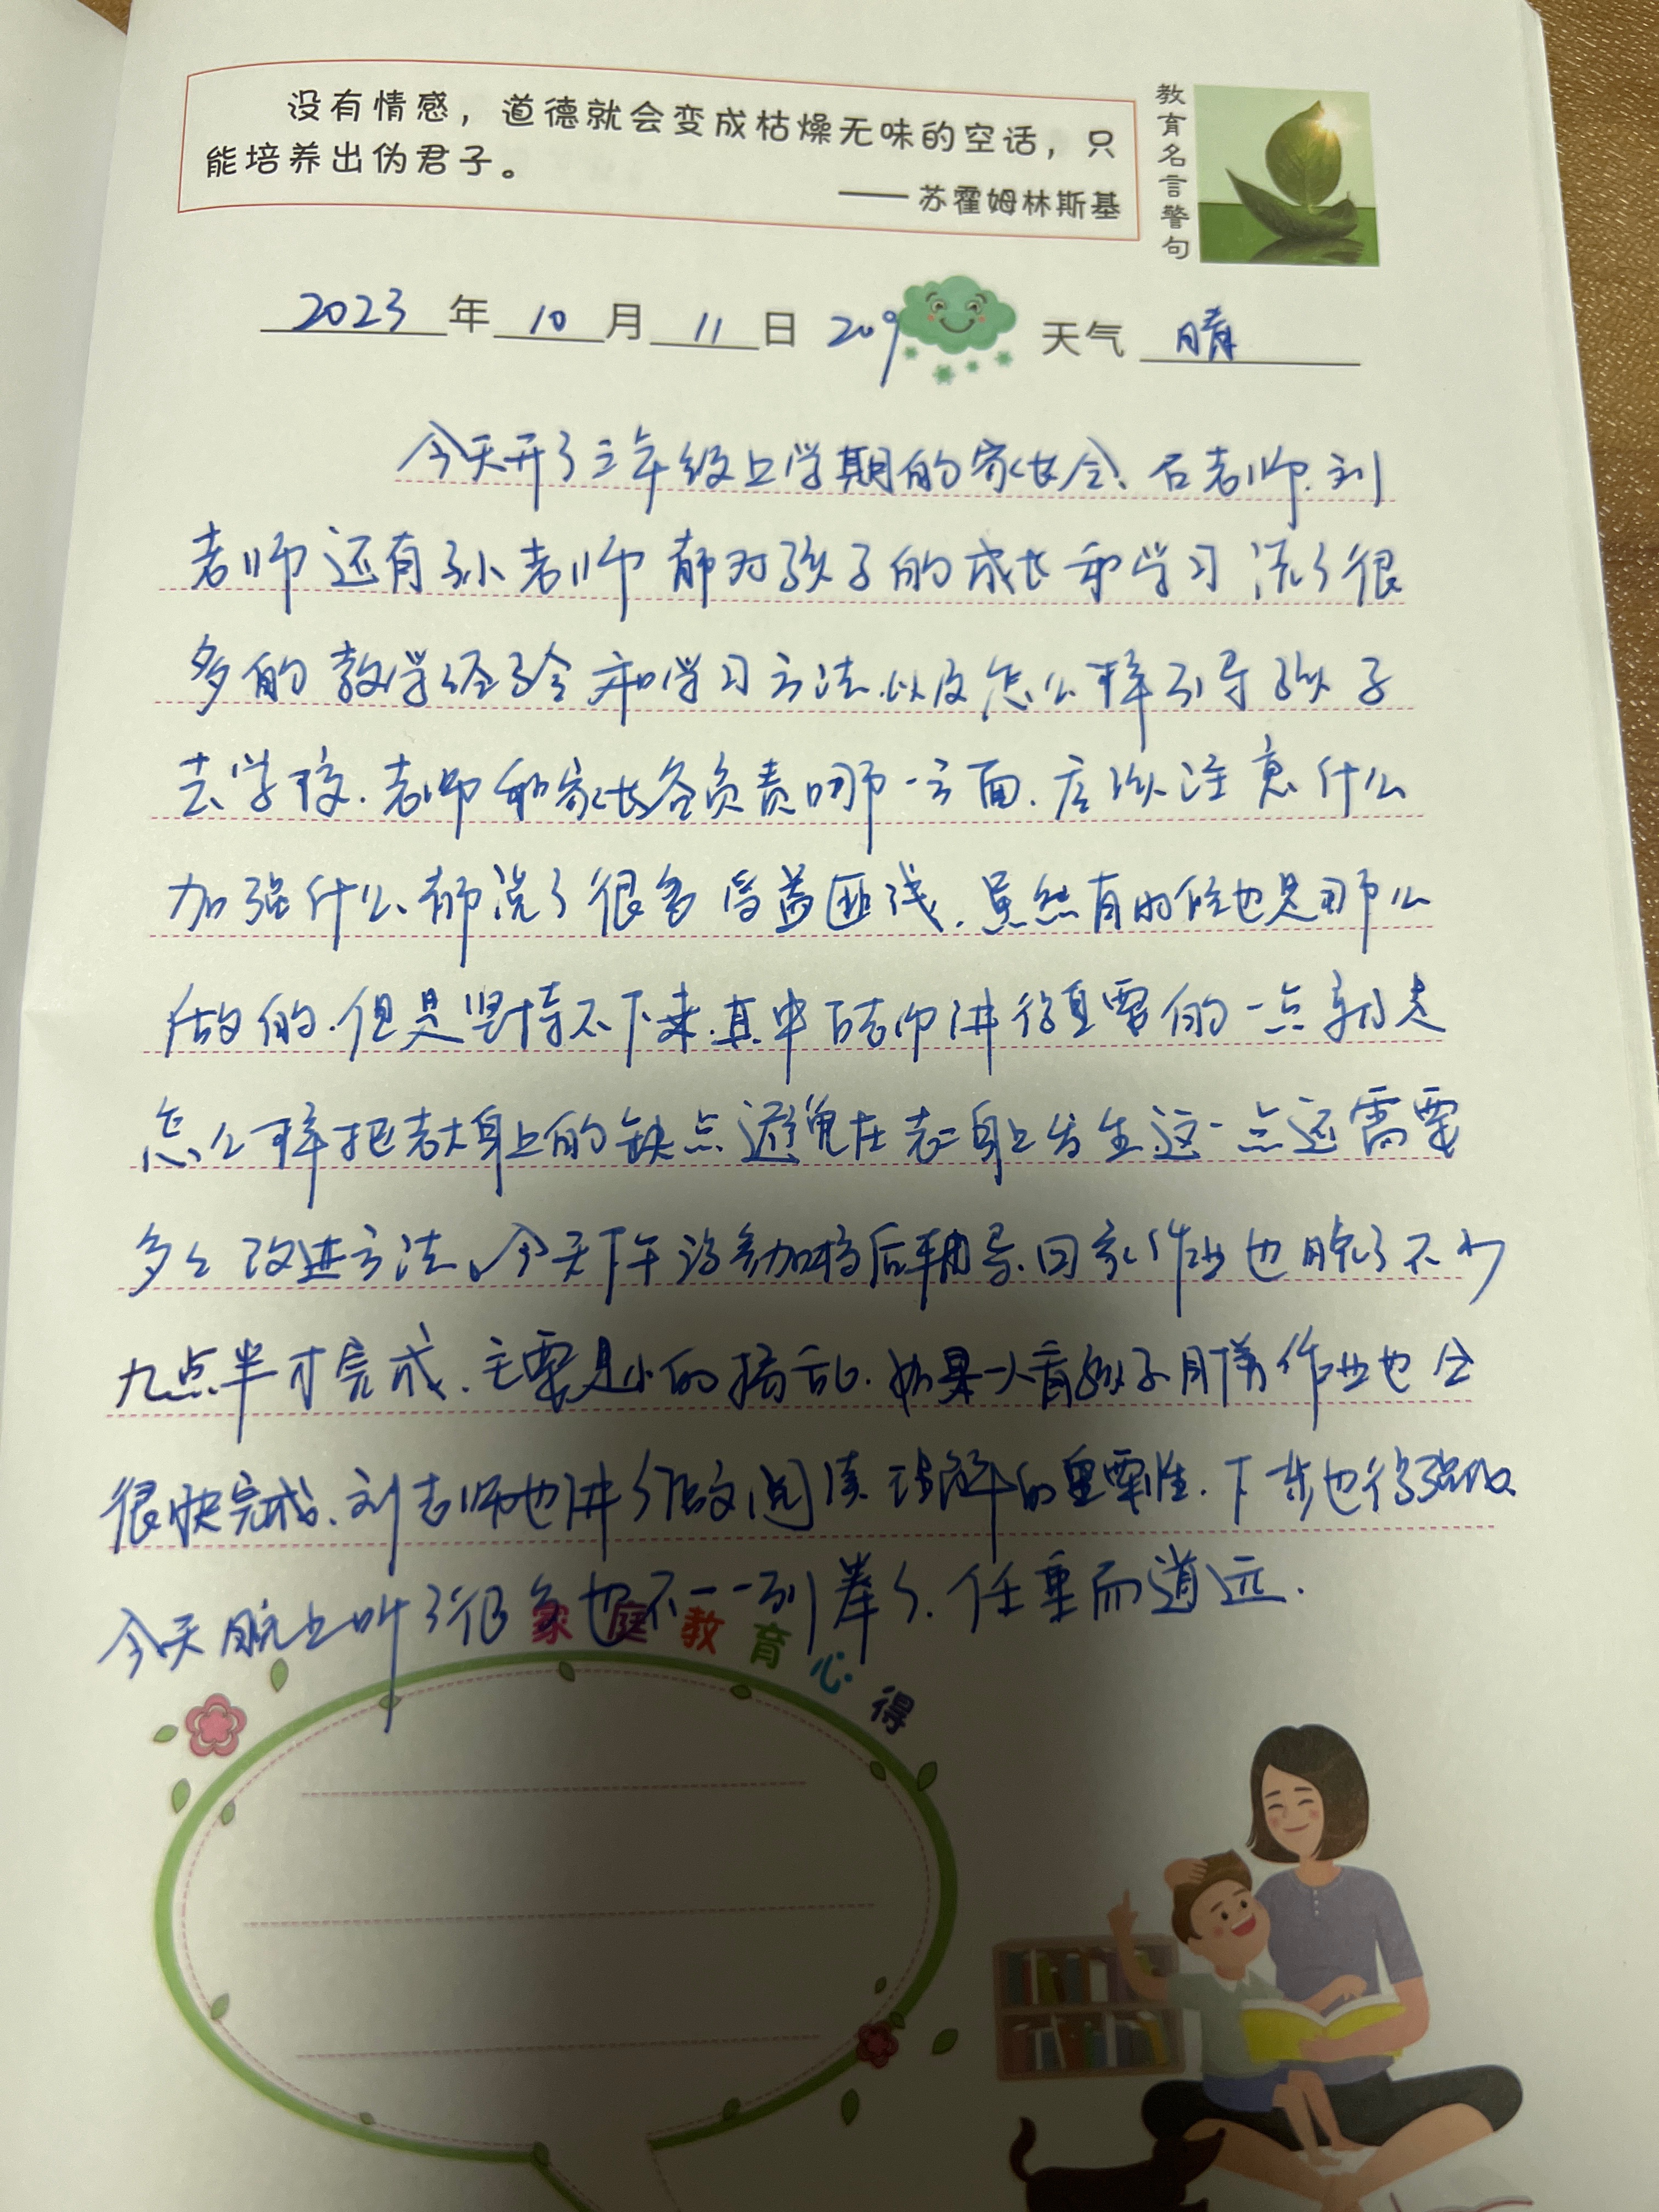 没有情感，道德就会变成枯燥无味的空话，只
能培养出伪君子。
——苏霍姆林斯基
教育名言警句
2023年10月11日 209 天气 晴
今天开了三年级上学期的家长会、石老师.刘
老师还有孙老师都对孩子的成长和学习说了很
多的教学经验和学习方法.以及怎么样引导孩子
去学校.老师和家长各负责哪一方面.应该注意什么
加强什么、都说了很多受益匪浅.虽然有的时候也是那么
做的.但是坚持不下来.其中石老师讲得重要的一点就是
怎么样把老大身上的缺点避免在老二身上发生这一点还需要
多多改进方法、今天下午没参加课后辅导.回家作业也晚了不少
九点半才完成.主要是小的捣乱.如果一人看孩子的作业也会
很快完成.刘老师也讲了做阅读理解的重要性.下步也得强化.
今天晚上听了很多也不一一列举了.任重而道远.
家庭教育心得